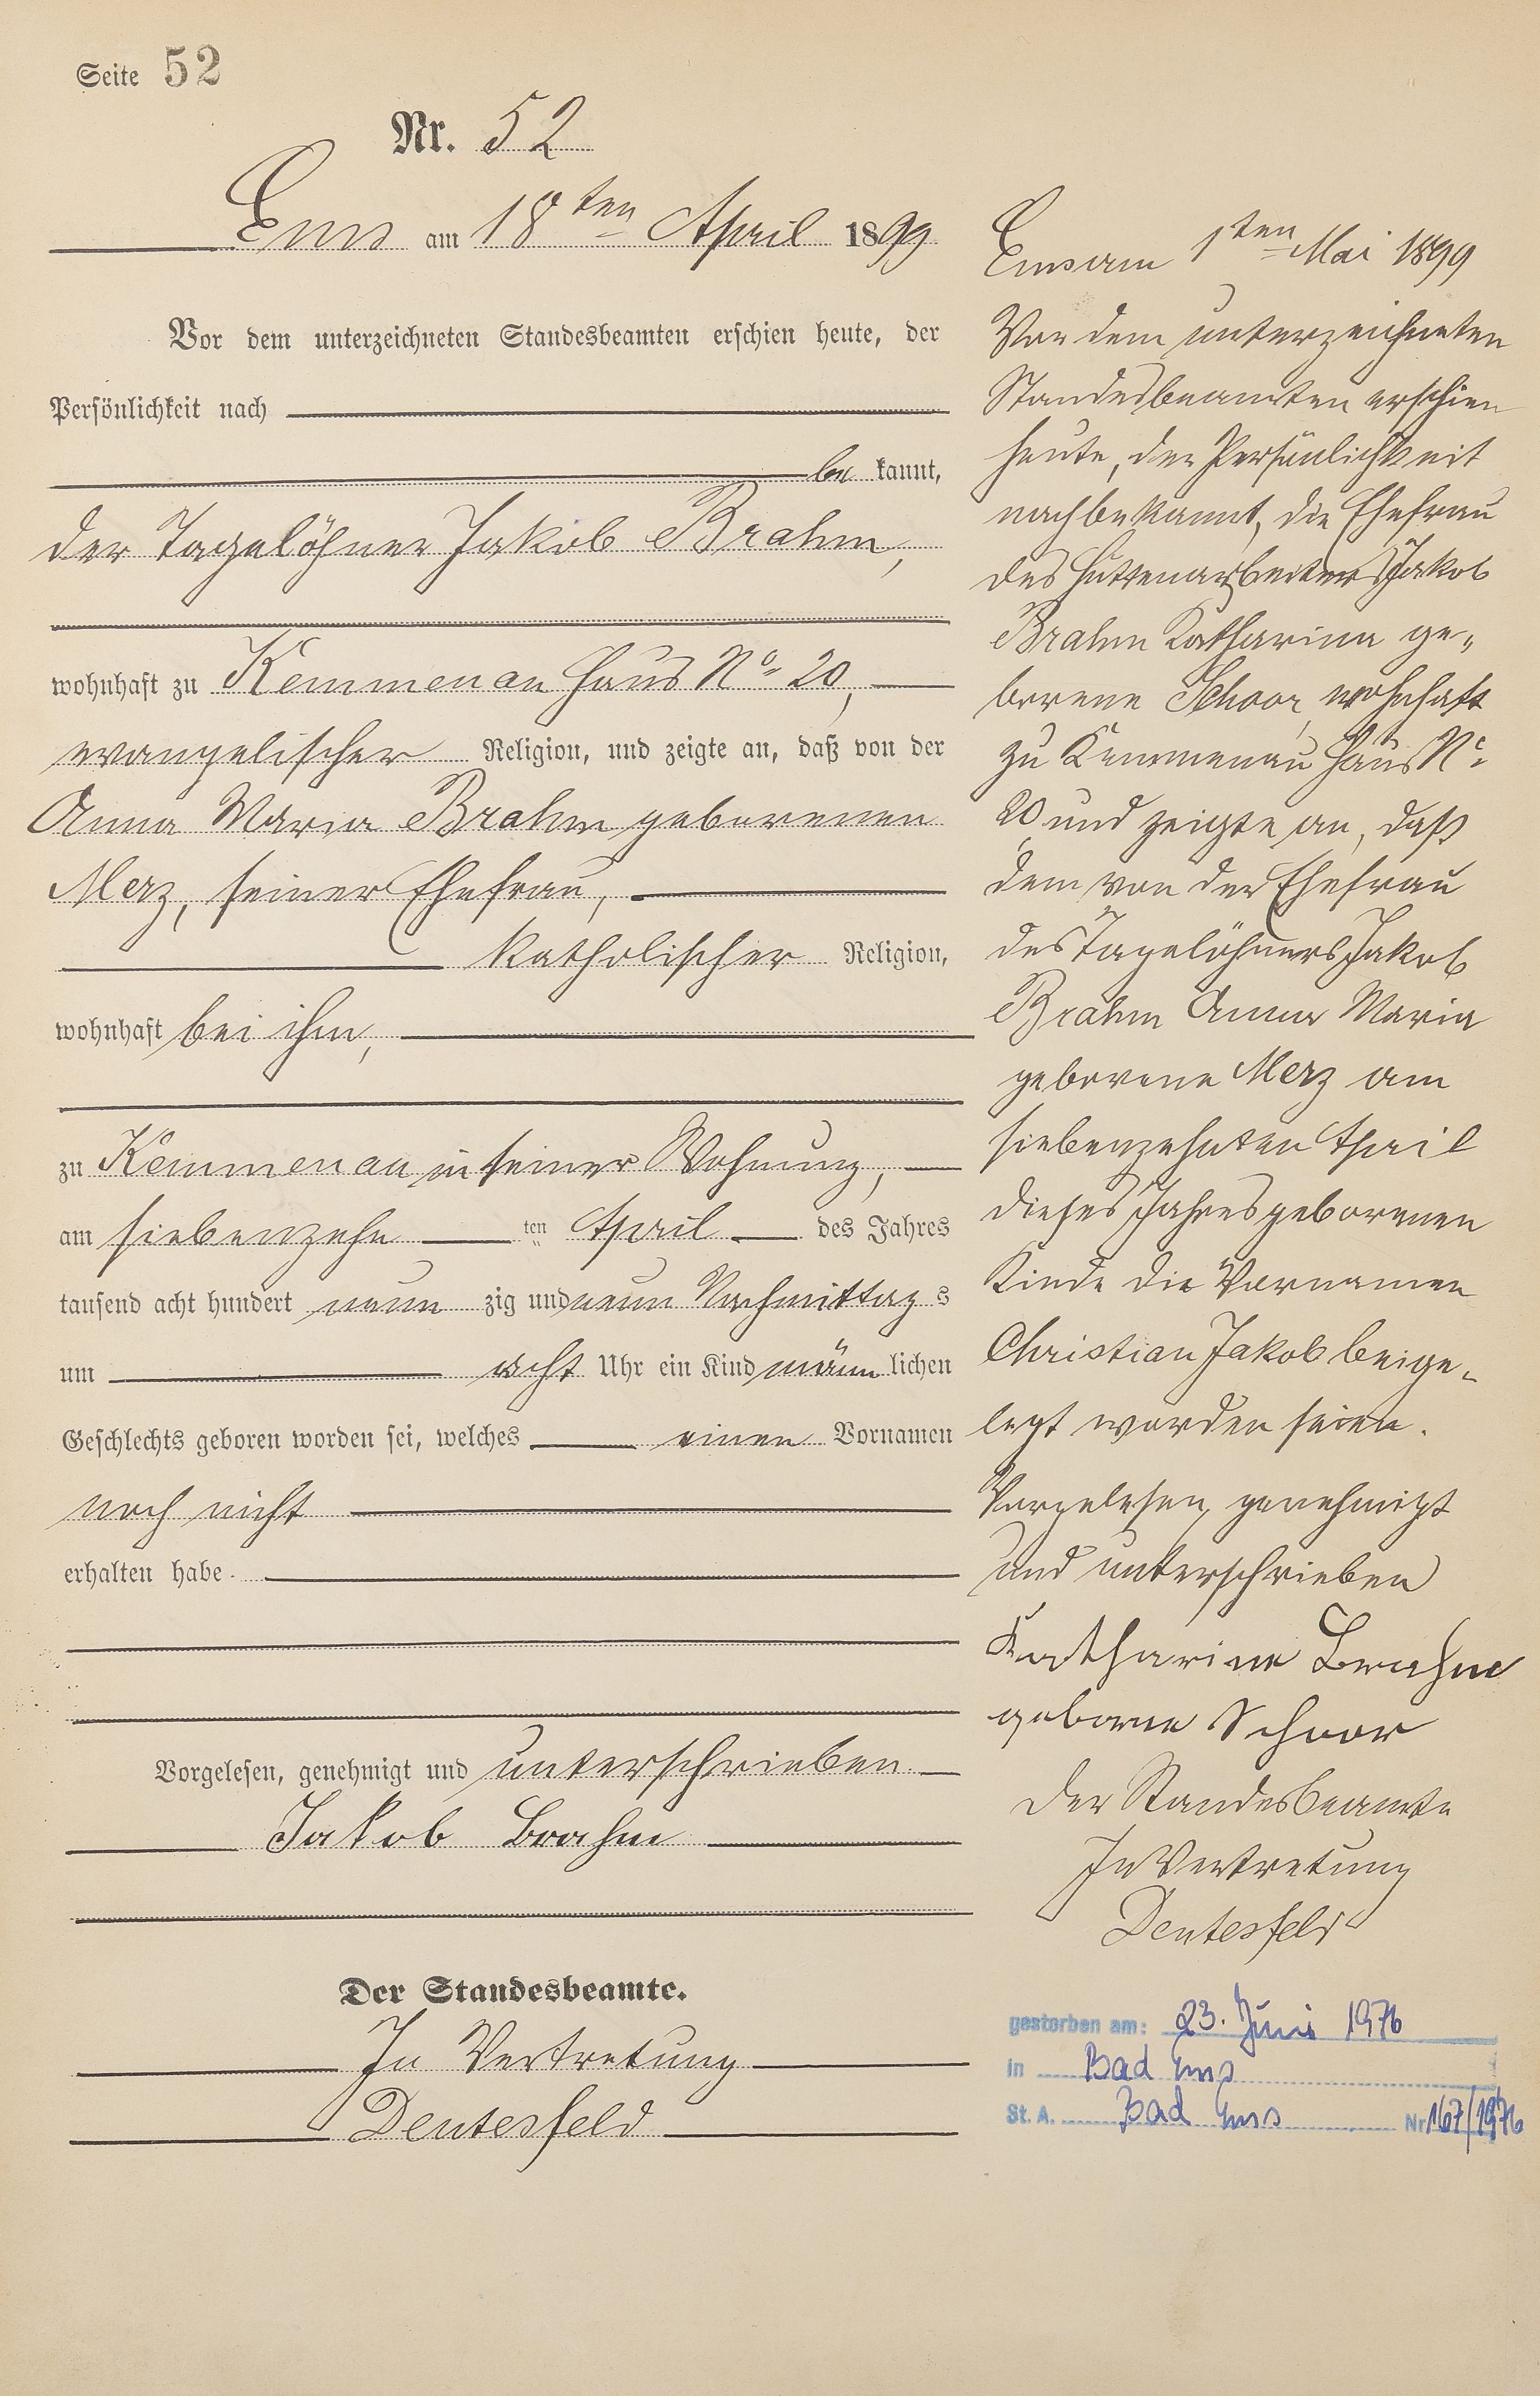 Seite 52
Nr. 52
Ems am 18ten April 1899
Vor dem unterzeichneten Standesbeamten erschien heute, der
Persönlichkeit nach
be kannt,
der Tagelöhner Jakob Brahm,
wohnhaft zu Kemmenau Haus No 20,
evangelischer Religion, und zeigte an, daß von der
Anna Maria Brahm geborenen
Merz, seiner Ehefrau,
katholischer Religion,
wohnhaft bei ihm,
zu Kemmenau in seiner Wohnung,
am siebenzehn ten April des Jahres
tausend acht hundert neun zig und neun Nachmittag s
um acht Uhr ein Kind männ lichen
Geschlechts geboren worden sei, welches einen Vornamen
noch nicht
erhalten habe.
Vorgelesen, genehmigt und unterschrieben
Jakob Brahm
Der Standesbeamte.
In Vertretung
Deutesfeld
Ems am 1ten Mai 1899
Vor dem unterzeichneten
Standesbeamten erschien
heute, der Persönlichkeit
nach bekannt, die Ehefrau
des Hüttenarbeiters Jakob
Brahm Katharina ge„
borene Schoor, wohnhaft
zu Kemmenau Haus No
20 und zeigte an, daß
dem von der Ehefrau
des Tagelöhners Jakob
Brahm Anna Maria
geborene Merz am
siebenzehnten April
dieses Jahres geborenen
Kinde die Vornamen
Christian Jakob beige„
legt worden seien.
Vorgelesen, genehmigt
und unterschrieben
Katharina Brahm
geborne Schoor
Der Standesbeamte
In Vertretung
Deutesfeld
gestorben am: 23. Juni 1976
in Bad Ems
St. A. Bad Ems Nr 167/1976